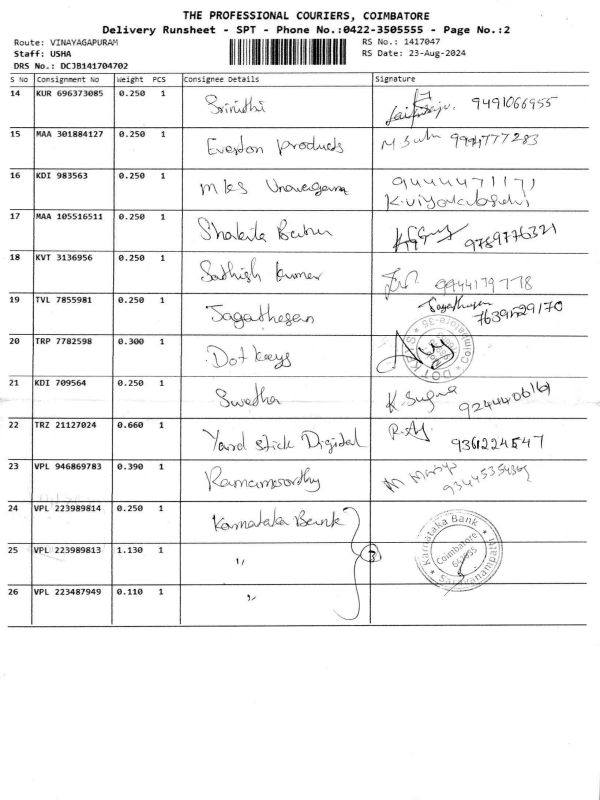 THE PROFESSIONAL COURIERS, COIMBATORE
Delivery Runsheet - SPT - Phone No.:0422-3505555 - Page No.:2
Route: VINAYAGAPURAM RS No.: 1417047
Staff: USHA RS Date: 23-Aug-2024
DRS No.: DCJB141704702
S No Consignment No Weight PCS Consignee Details Signature
14 KUR 696373085 0.250 1 Srinidhi 9491066955
15 MAA 301884127 0.250 1 Everton products 9994777283
16 KDI 983563 0.250 1 9444471171
17 MAA 105516511 0.250 1 Shakila Banu 9789776321
18 KVT 3136956 0.250 1 Sathish kumar 9944179778
19 TVL 7855981 0.250 1 Jagathesan Jagathesan
20 TRP 7782598 0.300 1 Dot keys
21 KDI 709564 0.250 1 Swetha K. Suguna
22 TRZ 21127024 0.660 1 Yard stick Digital 9361224547
23 VPL 946869783 0.390 1 Ramamoorthy
24 VPL 223989814 0.250 1 Karnataka Bank
25 VPL 223989813 1.130 1 " 3 Karnataka Bank Coimbatore Saravanampatti
26 VPL 223487949 0.110 1 "